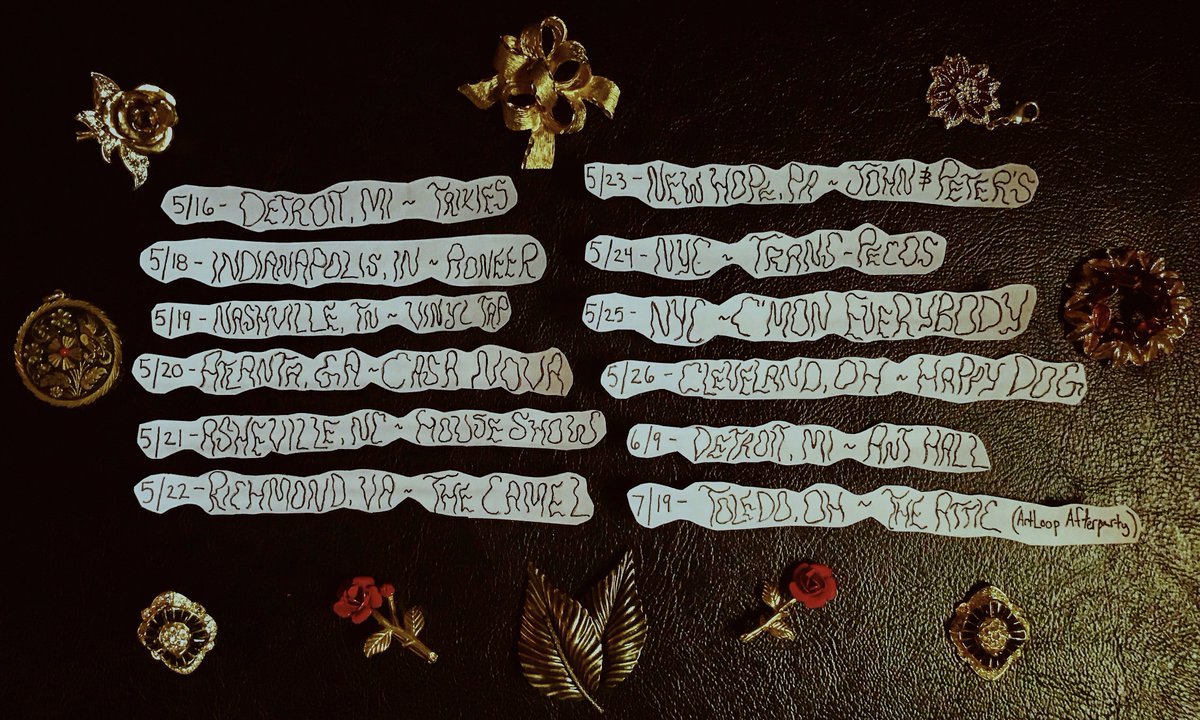 5/16 - DETROIT, MI ~ TRIXIES
5/18 - INDIANAPOLIS, IN ~ PIONEER
5/19 - NASHVILLE, TN ~ VINYL TAP
5/20 - ATLANTA, GA ~ CASA NOVA
5/21 - ASHEVILLE, NC ~ HOUSE SHOW
5/22 - RICHMOND, VA ~ THE CAMEL
5/23 - NEW HOPE, PA ~ JOHN & PETER'S
5/24 - NYC ~ TRANS-PECOS
5/25 - NYC ~ C'MON EVERYBODY
5/26 - CLEVELAND, OH ~ HAPPY DOG
6/9 - DETROIT, MI ~ ANT HALL
7/19 - TOLEDO, OH ~ THE ATTIC (ArtLoop Afterparty)